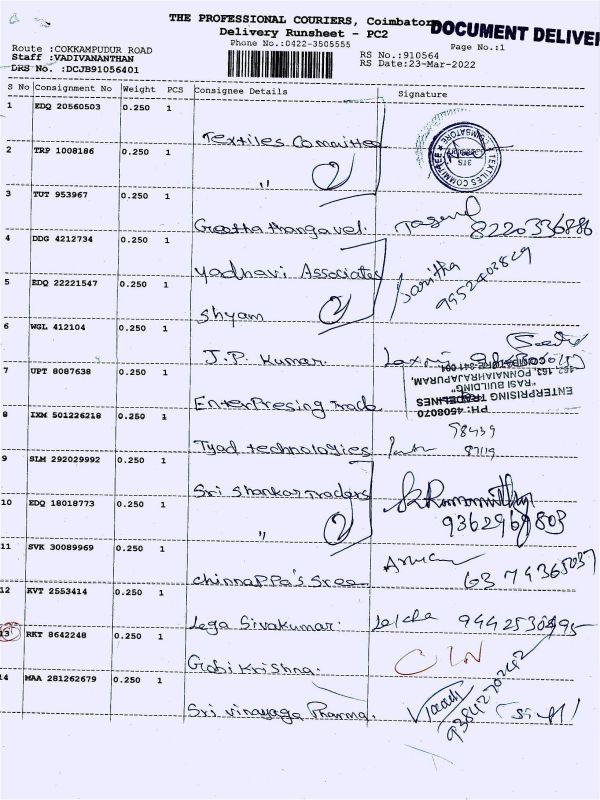 THE PROFESSIONAL COURIERS, Coimbator
DOCUMENT DELIVER
Delivery Runsheet - PC2
Phone No.:0422-3505555
Page No.:1
Route :COKKAMPUDUR ROAD
RS No.:910564
Staff :VADIVANANTHAN
RS Date:23-Mar-2022
DRS No. :DCJB91056401
S No Consignment No Weight PCS Consignee Details Signature
1 EDQ 20560503 0.250 1
Textiles Committee
TEXTILES COMMITTEE
2 TRP 1008186 0.250 1
" 2
3 TUT 953967 0.250 1
Geetha thangavel. 8220336886
4 DDG 4212734 0.250 1
Yadhavi Associates Saritha
9952403849
5 EDQ 22221547 0.250 1
Shyam 2
6 WGL 412104 0.250 1
J.P. Kumar. Laxmi
7 UPT 8087638 0.250 1
EnterPresing Trade
ENTERPRISING TRADELINES
"RASI BUILDING"
162, 163, PONNAIAHRAJAPURAM,
COIMBATORE-641 001
PH: 4508070
8 IXM 501226218 0.250 1
Tyad technologies
98439
87119
9 SLM 292029992 0.250 1
Sri Shankar Traders
10 EDQ 18018773 0.250 1
" 2
9362969803
11 SVK 30089969 0.250 1
chinnappa's Sree
6374365037
12 KVT 2553414 0.250 1
Lega Sivakumar. 9442530495
13 RKT 8642248 0.250 1
Gobi Krishna.
14 MAA 281262679 0.250 1
Sri vinayaga Pharma.
9384270242